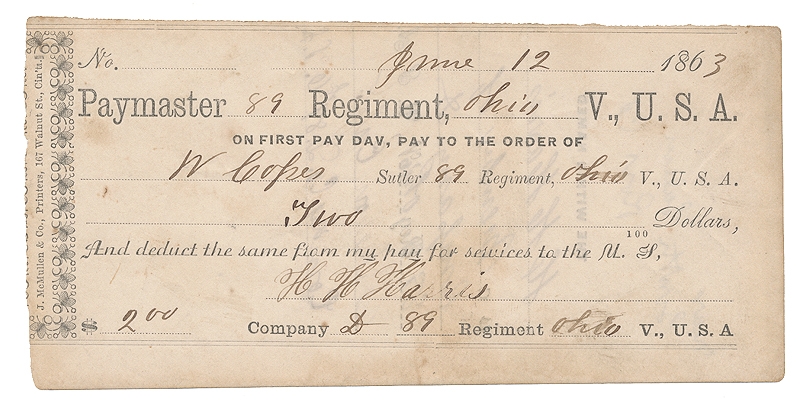 No. June 12 1863
Paymaster 89 Regiment, Ohio V., U. S. A.
ON FIRST PAY DAY, PAY TO THE ORDER OF
W Copes Sutler 89 Regiment, Ohio V., U. S. A.
Two 100 Dollars,
And deduct the same from my pay for services to the U. S,
H H Harris
$ 2 00 Company D 89 Regiment Ohio V., U. S. A
J. McMullen & Co., Printers, 167 Walnut St., Cin'ti.